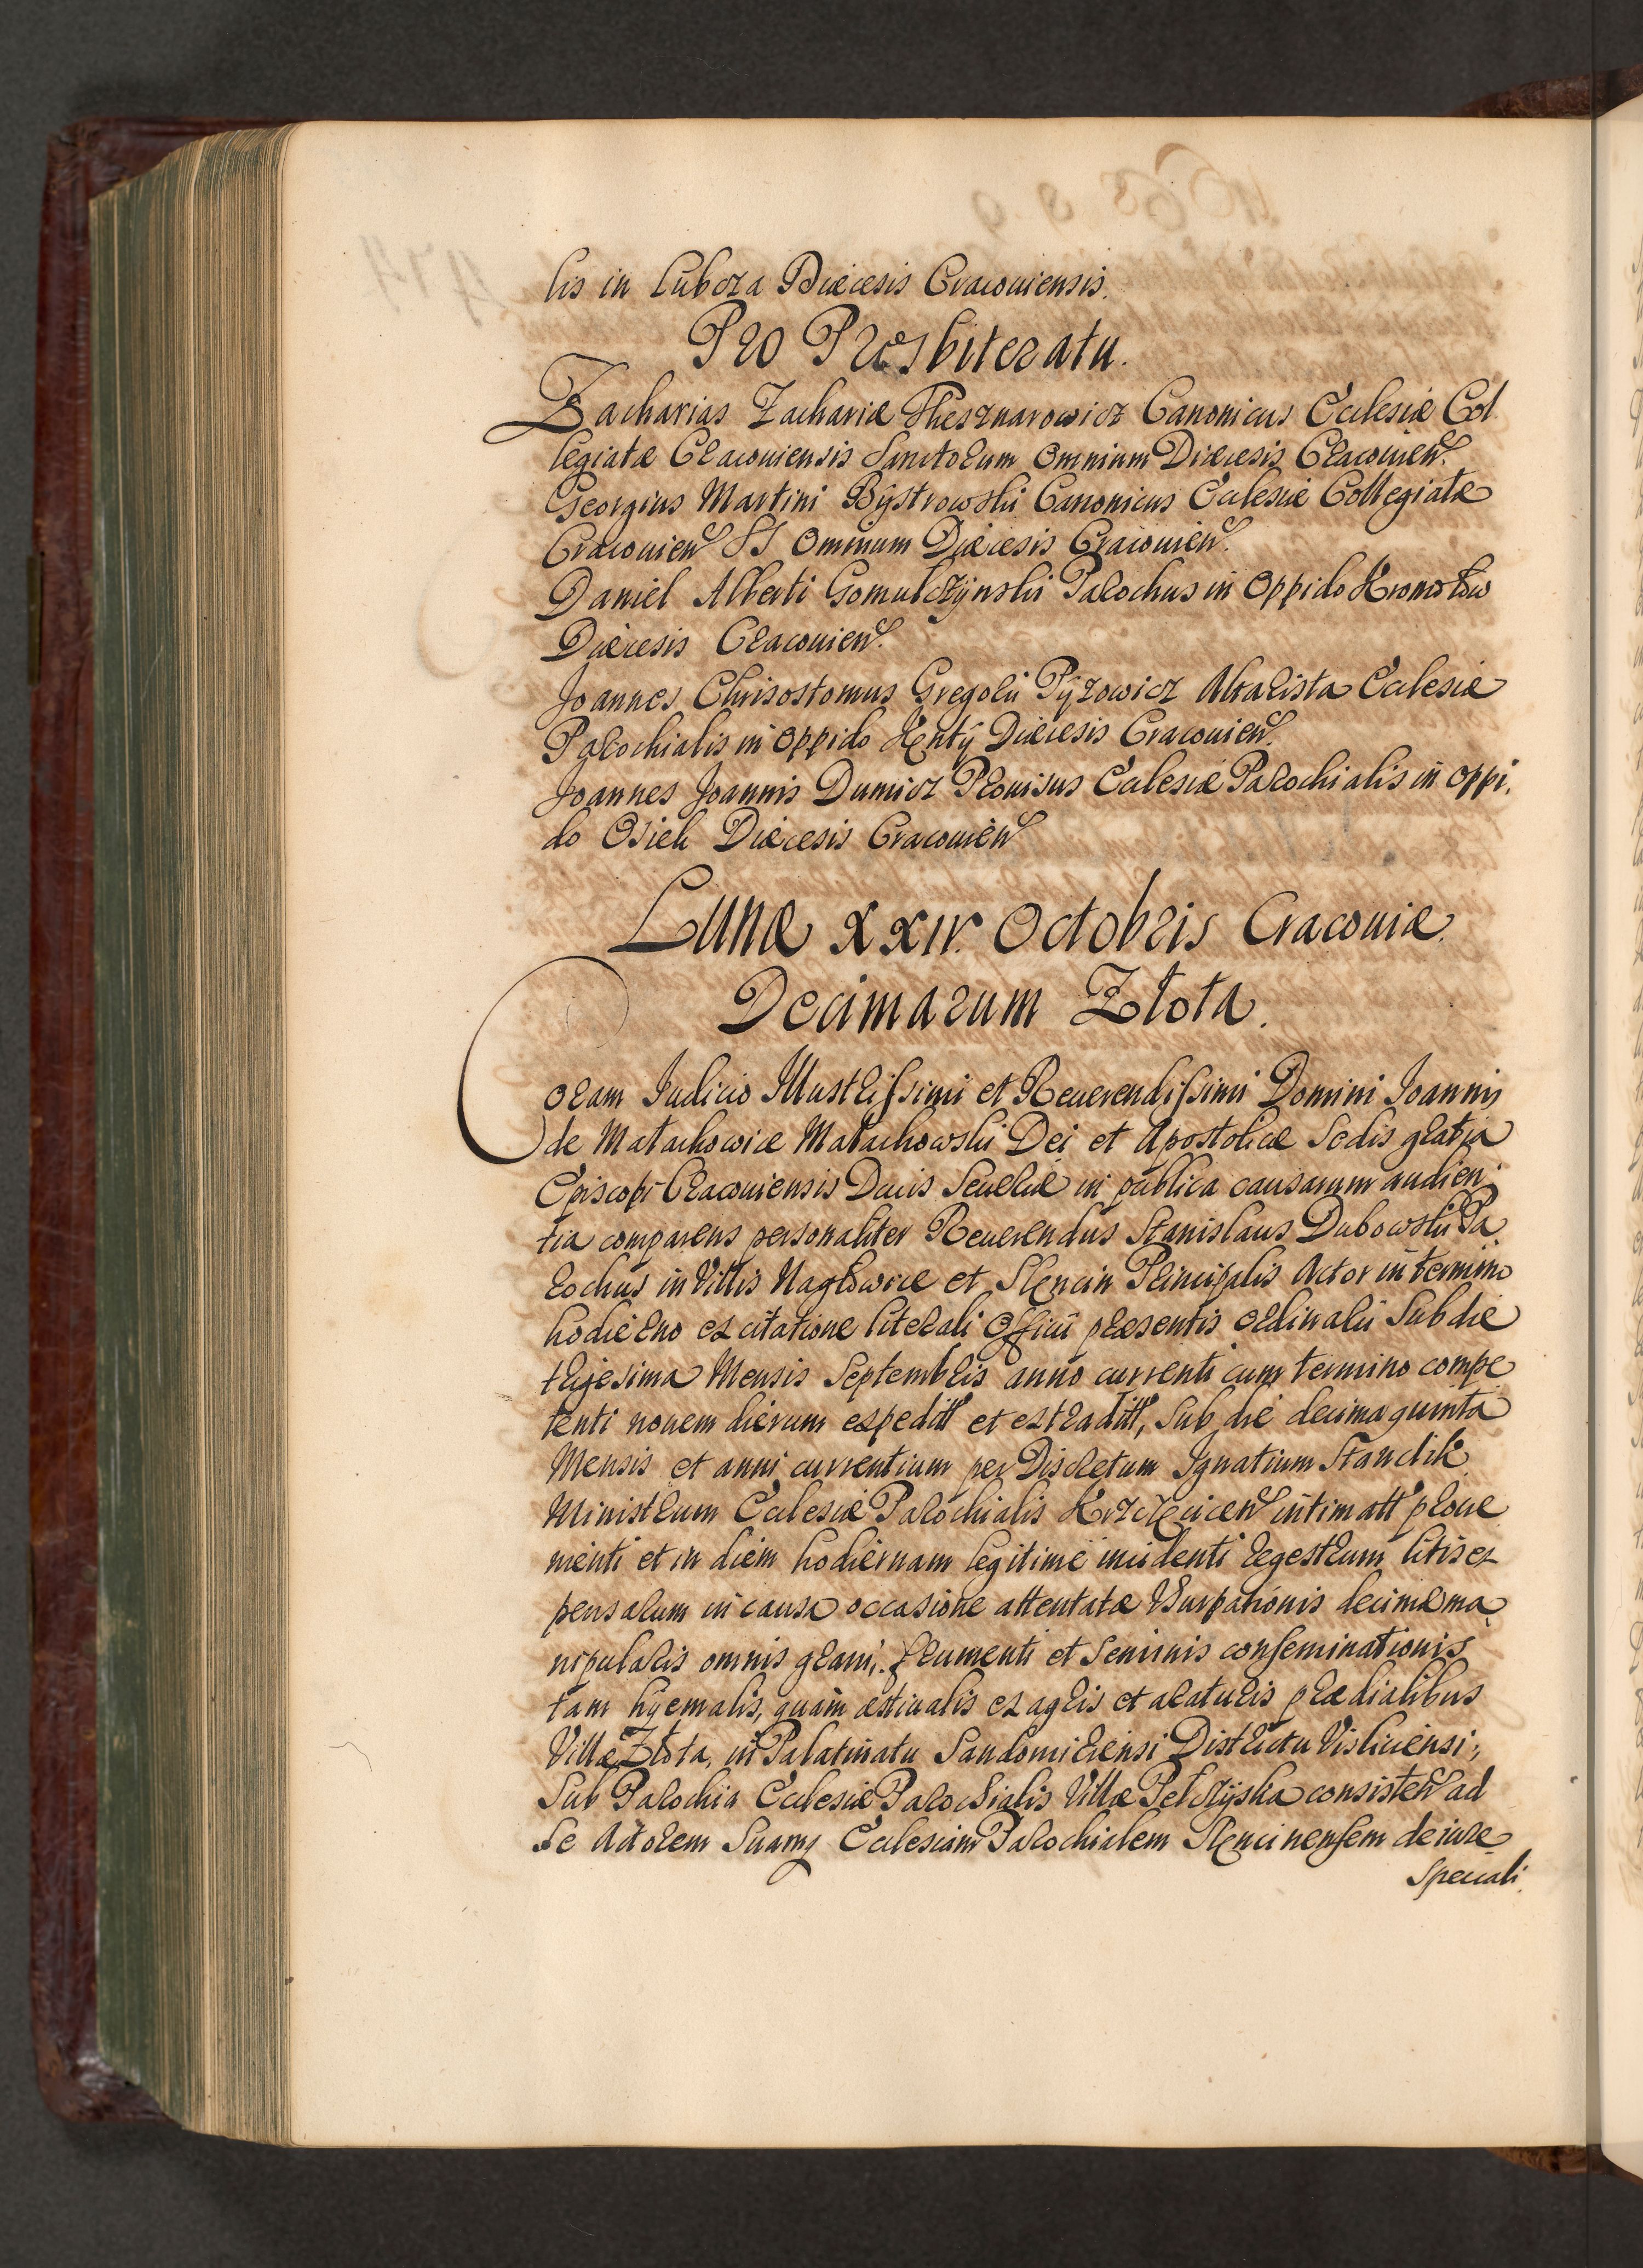 lis in Lubcza Diæcesis Cracouiensis.
Pro Presbiteratu.
Zacharias Zachariæ Thesznarowicz Canonicus Ecclesiæ Col
legiatæ Cracouiensis Sanctorum Omnium Diæcesis Cracouien̄.
Georgius Martini Bÿstrowski Canonicus Ecclesiæ Collegiatæ
Cracouien̄ SS Omnium Diæcesis Cracouien̄.
Daniel Alberti Gomulczÿnski Parochus in Oppido Kromołow
Diæcesis Cracouien̄.
Joannes Chrisostomus Gregorii Pÿzowicz Altarista Ecclesiæ
Parochialis in Oppido Kentÿ Diæcesis Cracouien̄.
Joannes Joannis Dumicz Prouisus Ecclesiæ Parochialis in oppi,
do Osiek Diæcesis Cracouien̄
Lunæ xxiv. Octobris Cracouiæ.
Decimarum Złota.
Coram Iudicio Illustrissimi et Reuerendissimi Domini Joannis
de Małachowice Małachowski Dei et Apostolicæ Sedis gratia
Episcopi Cracouiensis Ducis Seueriæ in publica causarum audien,
tia comparens personaliter Reuerendus Stanislaus Dubowski Pa,
rochus in Villis Nagłowice et Slencin Principalis Actor in termino
hodierno ex citatione literali Officii præsentis ordinarii Sub die
trigesima Mensis Septembris anno currenti cum termino compe
tenti nouem dierum expeditt et extraditt, Sub die decima quinta
Mensis et anni currentium per Discretum Ignatium Standik
Ministrum Ecclesiæ Parochialis Krzcięcicen̄ intimatt proue
nienti et in diem hodiernam legitime incidenti regestrum litis ex
pensarum in causa occasione attentatæ Vsurpationis decimæ ma,
nipularis omnis grani, frumenti et Seminis conseminationis
tam hÿemalis, quam æstiualis ex agris et araturis prædialibus
Villæ Złota, in Palatinatu Sandomiriensi Districtu Visliciensi,
Sub Parochia Ecclesiæ Parochialis Villæ Pełczÿska consisten̄ ad
Se Actorem Suamq Ecclesiam Parochialem Slencinensem de iure
Speciali